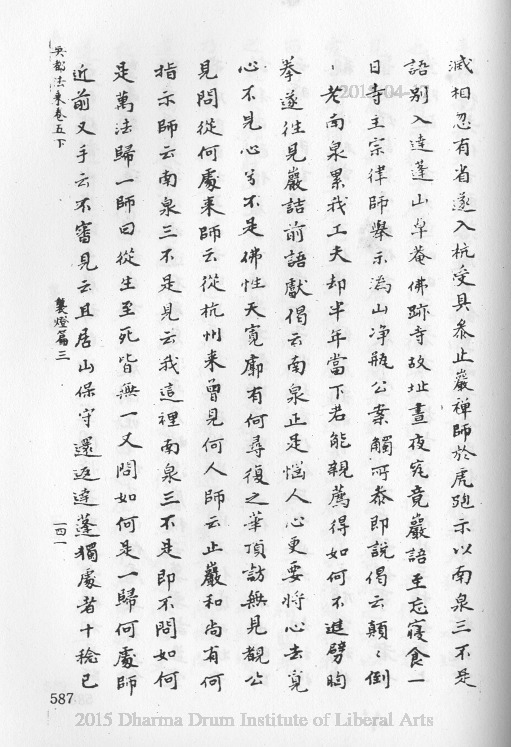 滅相忽有省遂入杭受具叅止巖禪師於虎跑示以南泉三不是
語別入達蓬山卓菴佛跡寺故址晝夜究竟巖語至忘寢食一
日寺主宗律師舉示溈山淨瓶公案觸所叅即說偈云顛〻倒
〻老南泉累我工夫却半年當下若能親薦得如何不進劈胸
拳遂徃見巖詰前語獻偈云南泉正是惱人心更要將心去覓
心不見心兮不是佛性天寬廓有何尋復之華頂訪無見覩公
見問從何處来師云從杭州来曾見何人師云止巖和尚有何
指示師云南泉三不是見云我這裡南泉三不是即不問如何
是萬法歸一師曰從生至死皆無一又問如何是一歸何處師
近前叉手云不審見云且居山保守還返達蓬獨處者十稔已
吳都法乗卷五下
襲燈篇三
一四一
587
2015-04
2015 Dharma Drum Institute of Liberal Arts